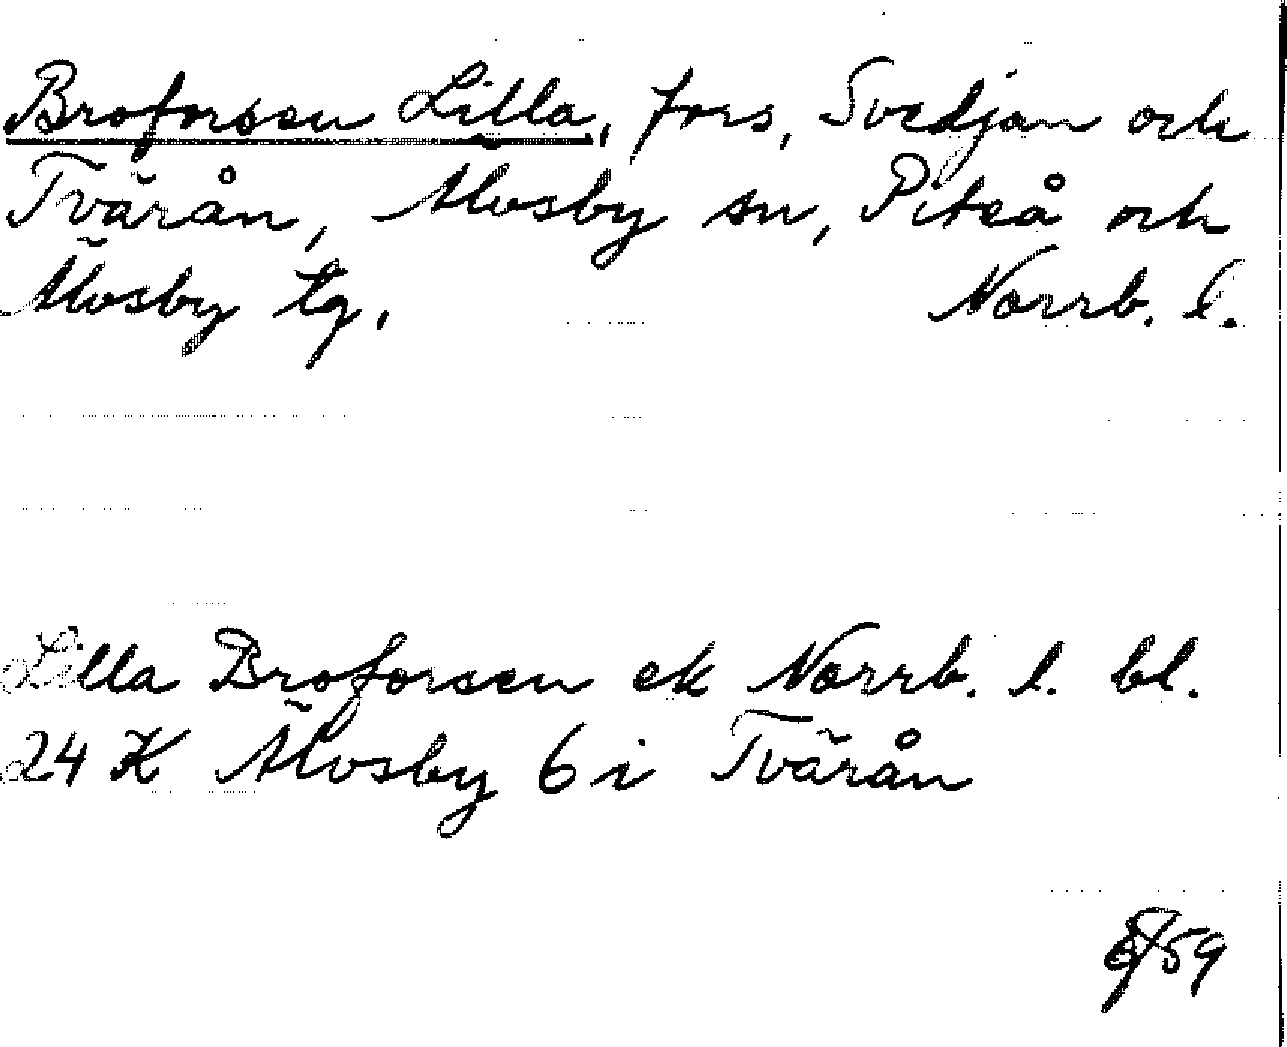 Broforsen Lilla, fors, Svedjan och
Tvärån, Älvsby sn, Piteå och
Älvsby tg. Norrb. l.
Lilla Broforsen ek Norrb. l. bl.
24 K Älvsby 6 i Tvärån